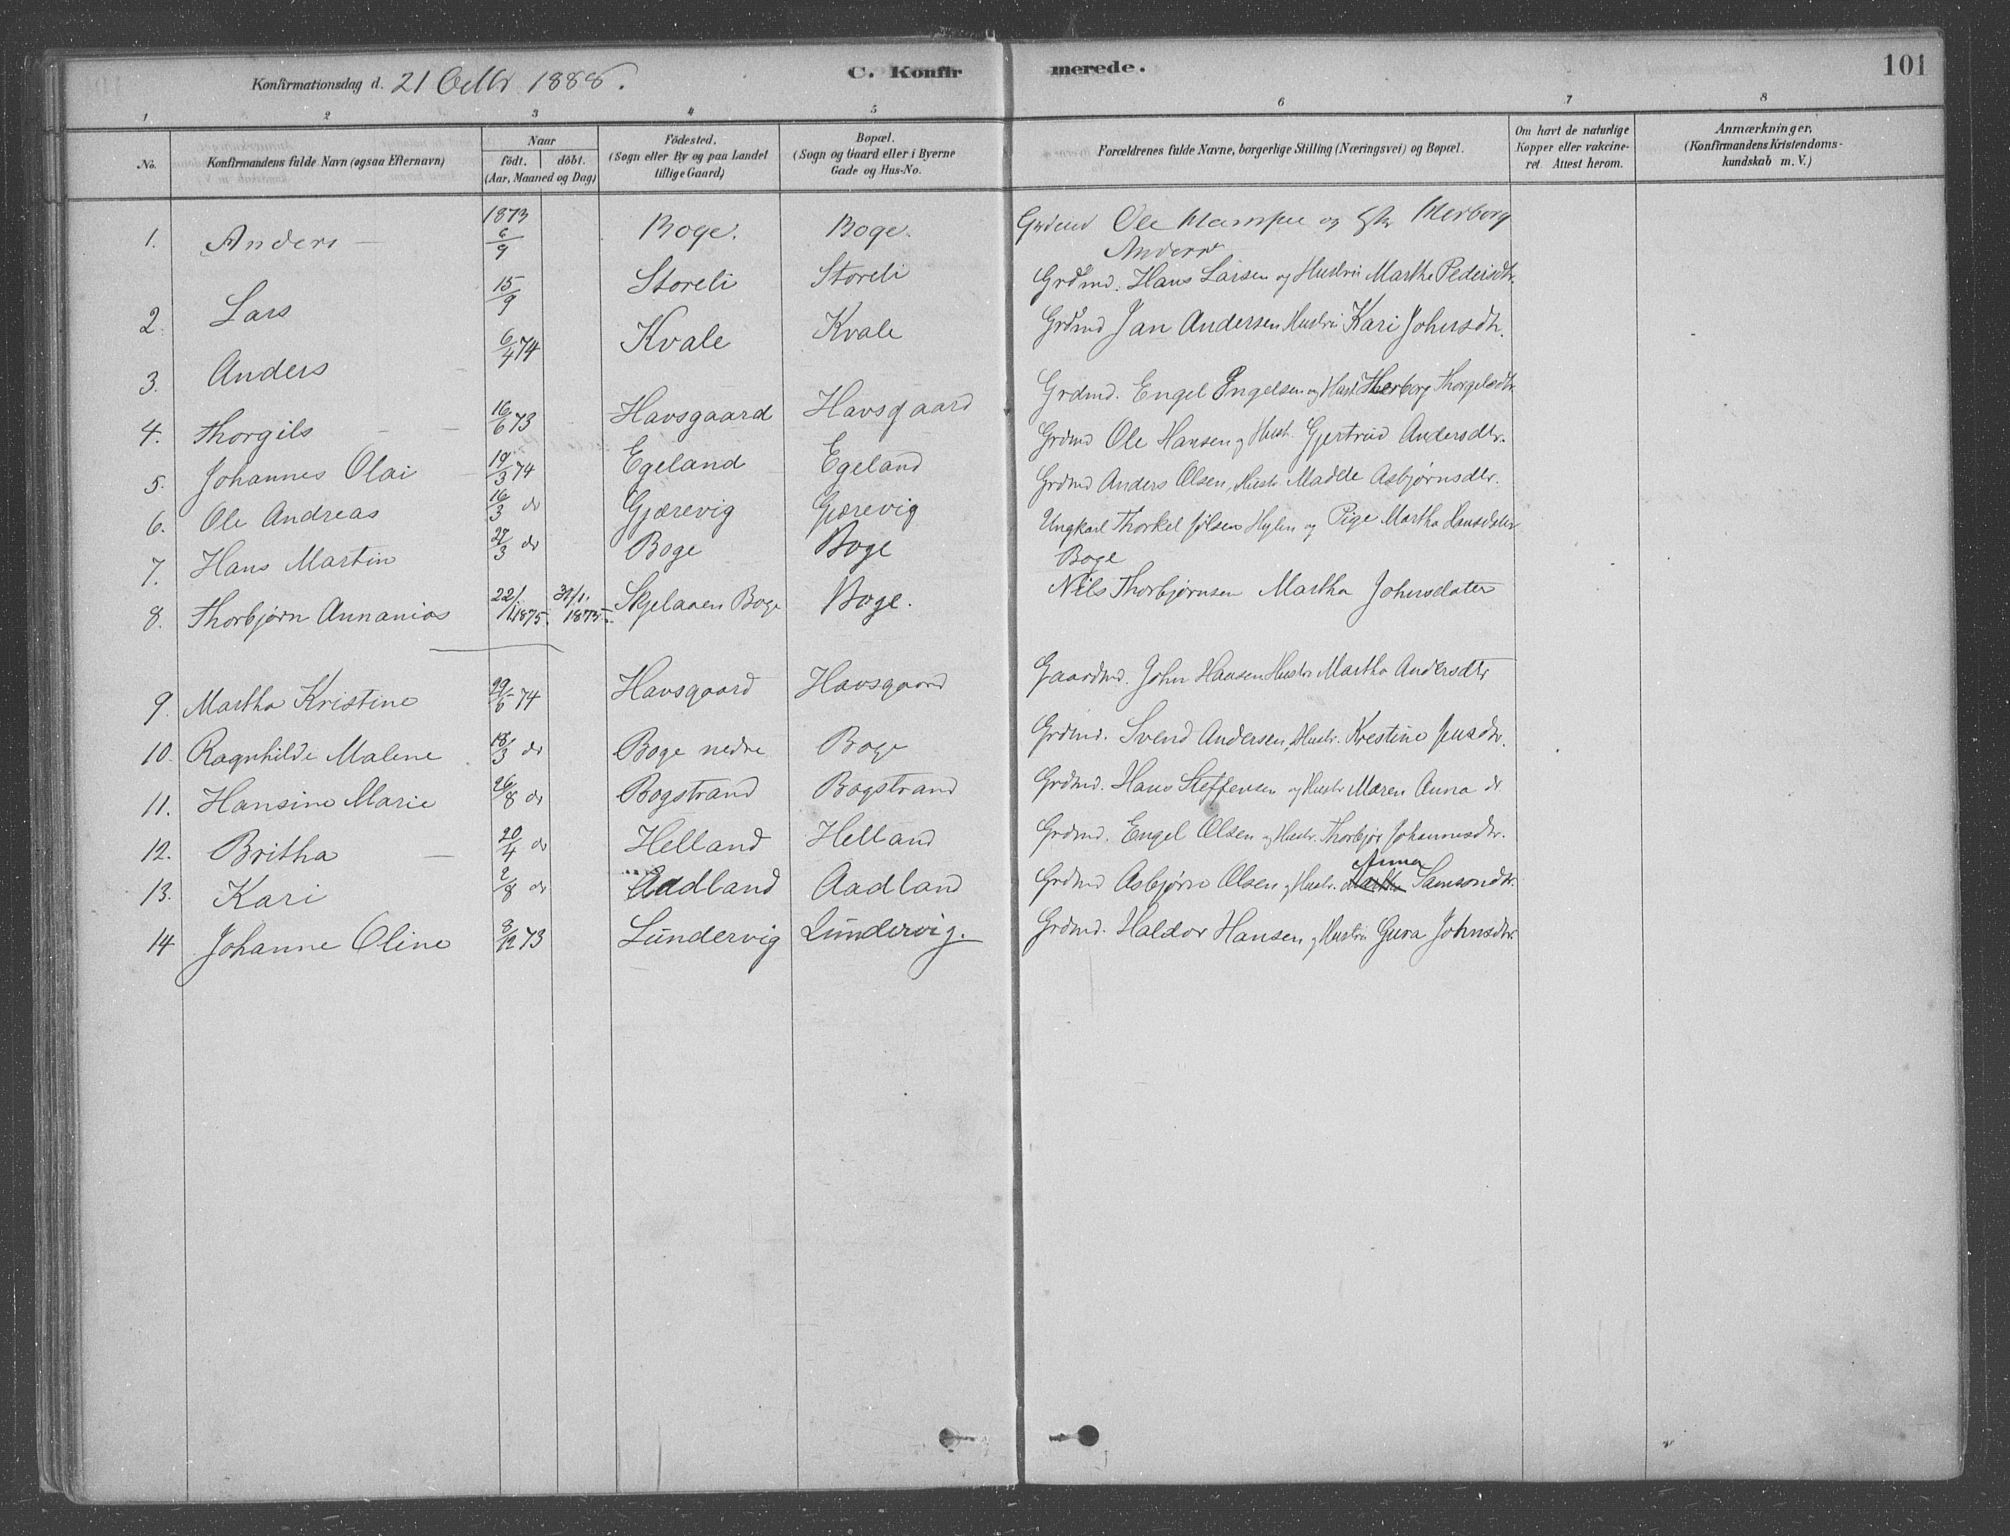 Konfirmationsdag d. 21 Octbr 1888. C. Konfirmerede. 101
1 2 3 4 5 6 7 8
No. Konfirmandens fulde Navn (ogsaa Efternavn) Naar født. døbt. (Aar, Maaned og Dag) Fødested. (Sogn eller By og paa Landet tillige Gaard) Bopæl. (Sogn og Gaard eller i Byerne Gade og Hus-No. Forældrenes fulde Navne, borgerlige Stilling (Næringsvei) og Bopæl. Om havt de naturlige Kopper eller vakcineret. Attest herom. Anmærkninger. (Konfirmandens Kristendomskundskab m. V.)
1. Anders 1873 6/9 Boge. Boge. Ole og Herborg
2. Lars 15/9 Storeli Storeli Grdmd. Hans Larsen og Hustru Marthe Pedersdtr.
3. Anders 6/4 74 Kvale Kvale Grdmd Jan Andersen Hustru Kari Johnsdtr.
4. Thorgils 16/6 73 Havsgaard Havsgaard Grdmd. Engel Engelsen og Hust Herborg Thorgilsdtr
5. Johannes Olai 19/3 74 Egeland Egeland Grdmd Ole Hansen og Hust. Gjertrud Andersdtr.
6. Ole Andreas 16/3 do Gjærevig Gjærevig Grdmd Anders Olsen, Hustr Madde Asbjørnsdtr.
7. Hans Martin 27/3 do Boge Boge Ungkarl Thorkel Hylen og Pige Martha Hansdatter
Boge
8. Thorbjørn Annanias 22/1 1875. 31/1. 1875. Skjelaaen Boge Boge. Nils Thorbjørnsen Martha Johnsdater
9. Martha Kristine 29/6 74 Havsgaard Havsgaard Gaardmd. John Hansen Hustr Martha Andersdtr
10. Ragnhilde Malene 18/3 do Boge nedre Boge Grdmd. Svend Andersen, Hustr. Krestine Jensdtr.
11. Hansine Marie 26/8 do Bogstrand Bogstrand Grdmd. Hans Steffensen og Hustr Maren Anna
12. Britha 20/4 do Helland Helland Grdmd. Engel Olsen og Hustr. Thorbjør Johannesdtr.
13. Kari 2/8 do Aadland Aadland Grdmd Asbjørn Olsen og Hustr. Anna Samsondtr.
14 Johanne Oline 8/12 73 Lundervig Lundervig. Grdmd. Haldor Hansen og Hustru Gura Johnsdtr